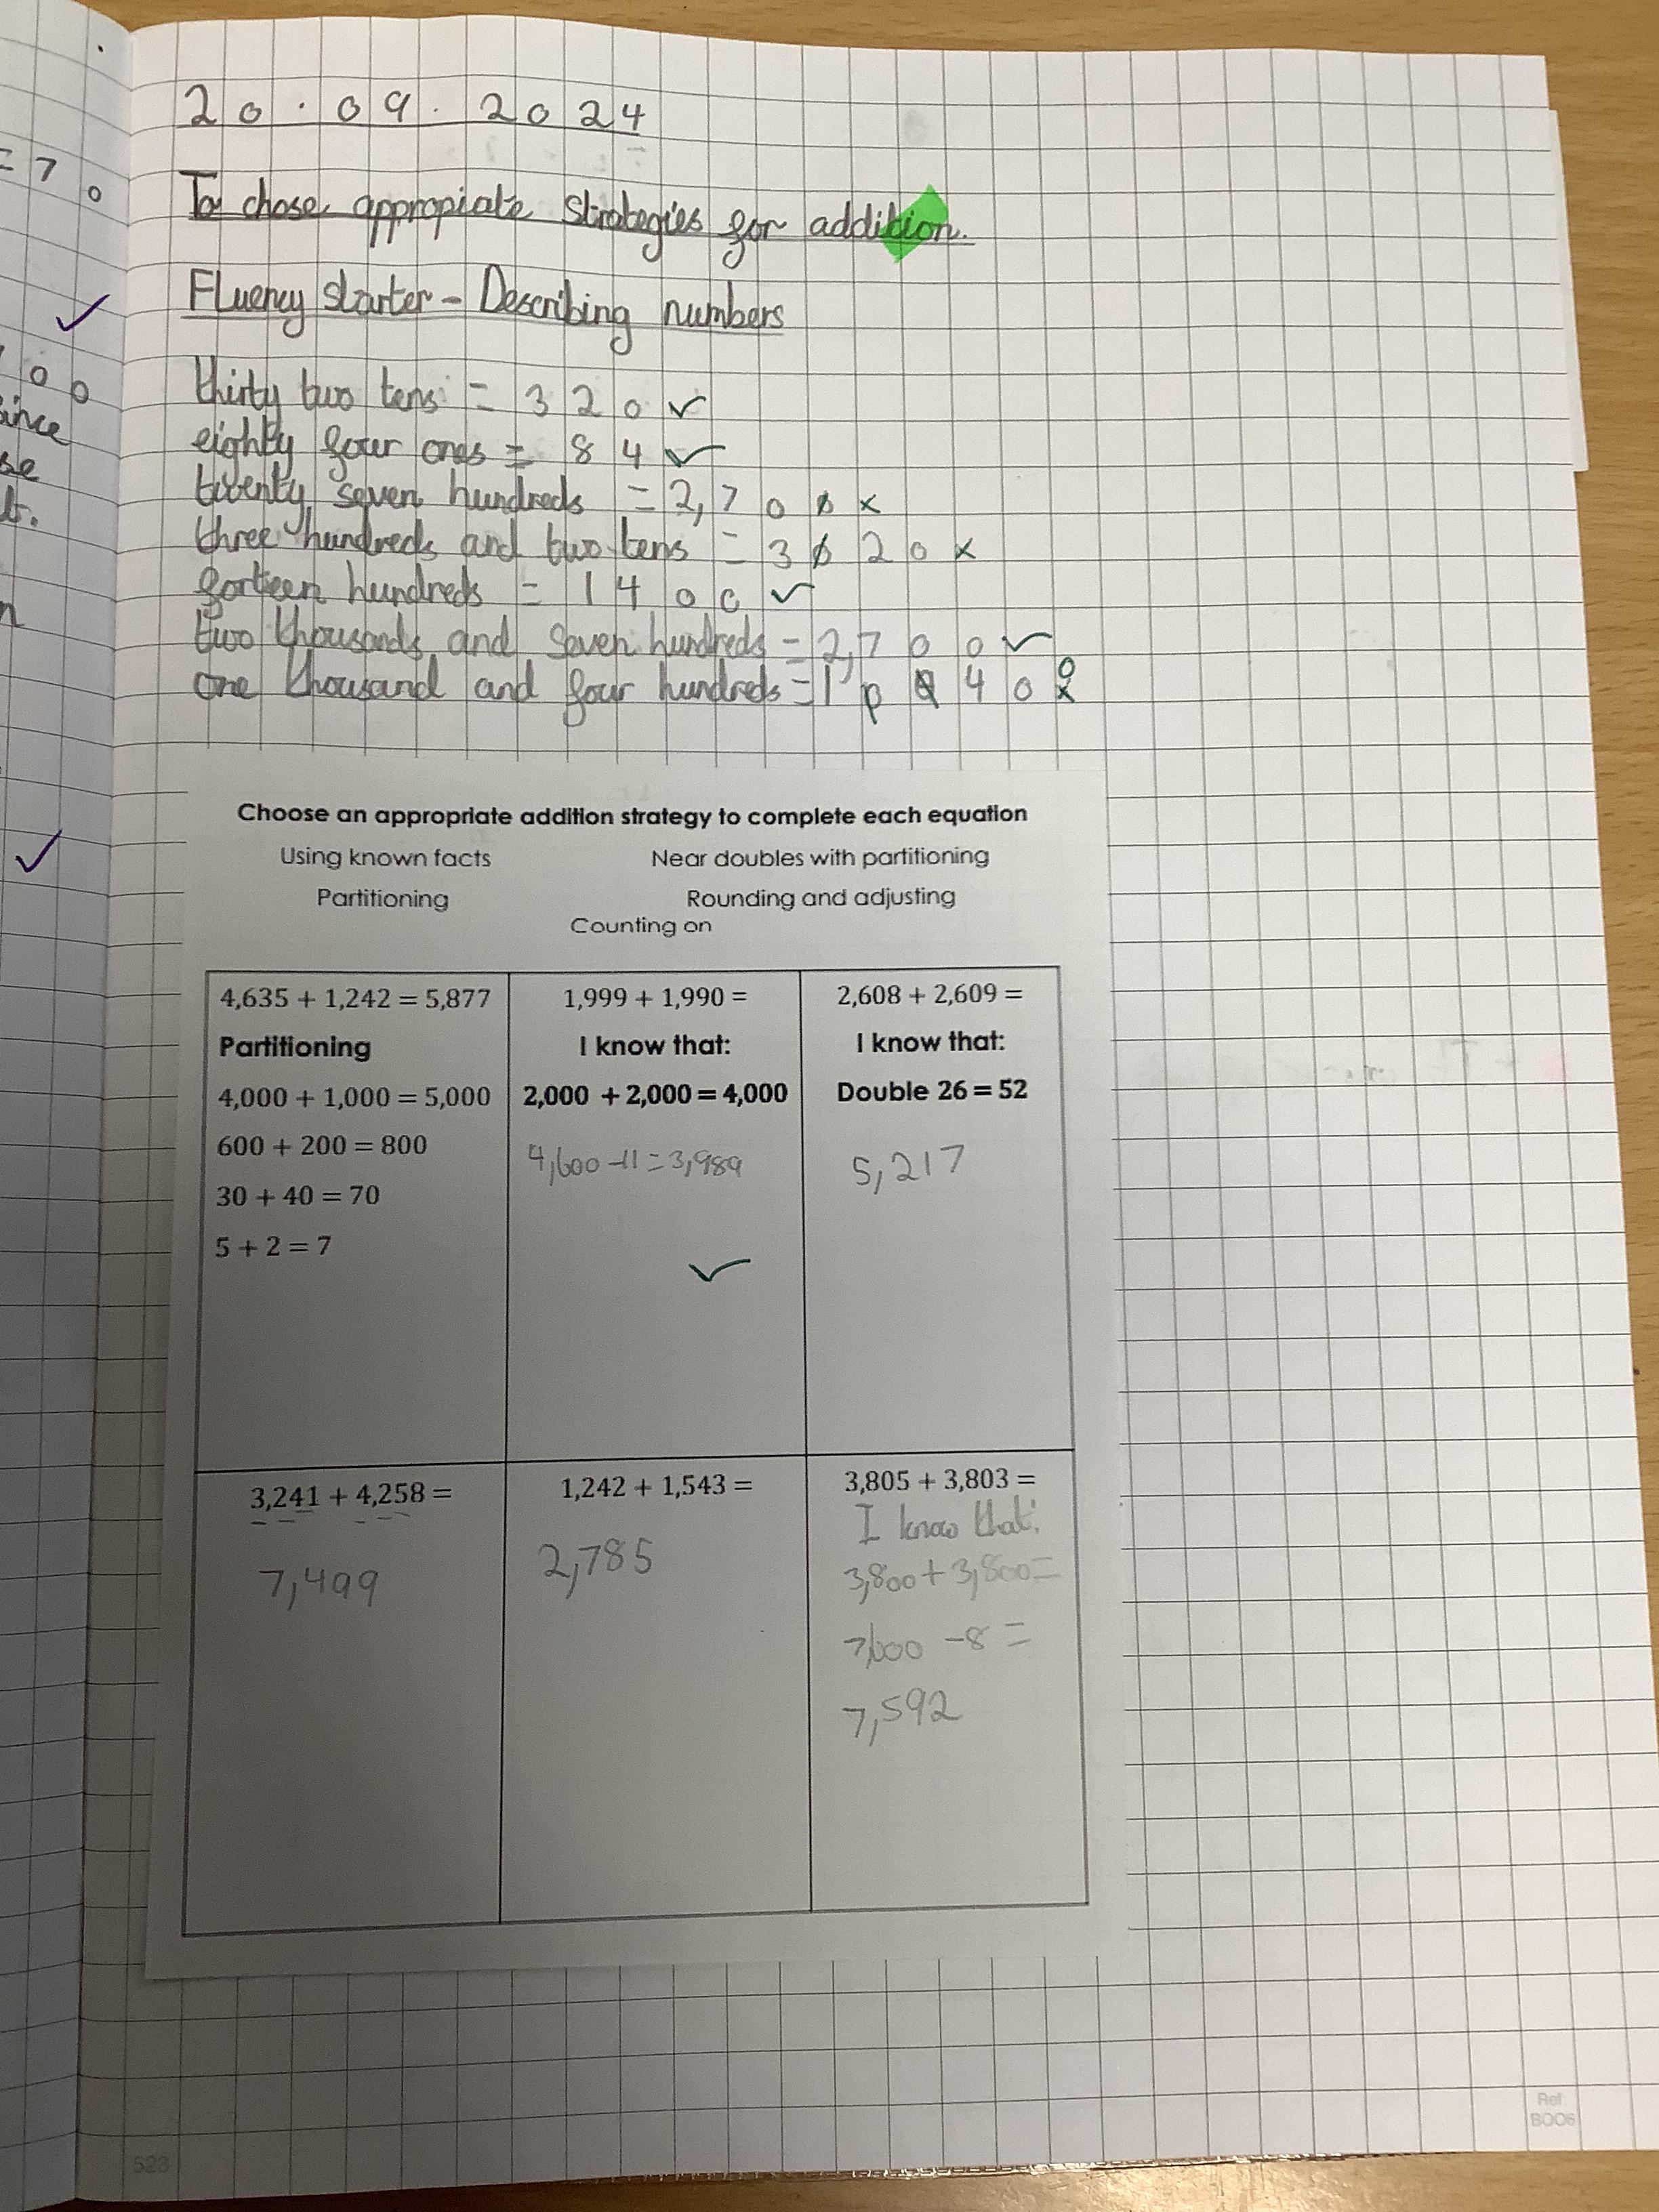 20.09.2024
To chose appropiate strategies for addition.
Fluency starter - Describing numbers
thirty two tens = 320 ✓
eighty four ones = 84 ✓
twenty seven hundreds = 2,700 x
three hundreds and two tens = 3020 x
forteen hundreds = 1400 ✓
two thousands and seven hundreds = 2,700 ✓
one thousand and four hundreds = 1, 40 0 x
= 70
✓
00
ince
se
✓
Choose an appropriate addition strategy to complete each equation
Using known facts Near doubles with partitioning
Partitioning Rounding and adjusting
Counting on
4,635 + 1,242 = 5,877
Partitioning
4,000 + 1,000 = 5,000
600 + 200 = 800
30 + 40 = 70
5 + 2 = 7
1,999 + 1,990 =
I know that:
2,000 + 2,000 = 4,000
4,600 - 11 = 3,989
✓
2,608 + 2,609 =
I know that:
Double 26 = 52
5,217
3,241 + 4,258 =
7,499
1,242 + 1,543 =
2,785
3,805 + 3,803 =
I know that:
3,800 + 3,800 =
7,600 - 8 =
7,592
523
Ref
BOO6